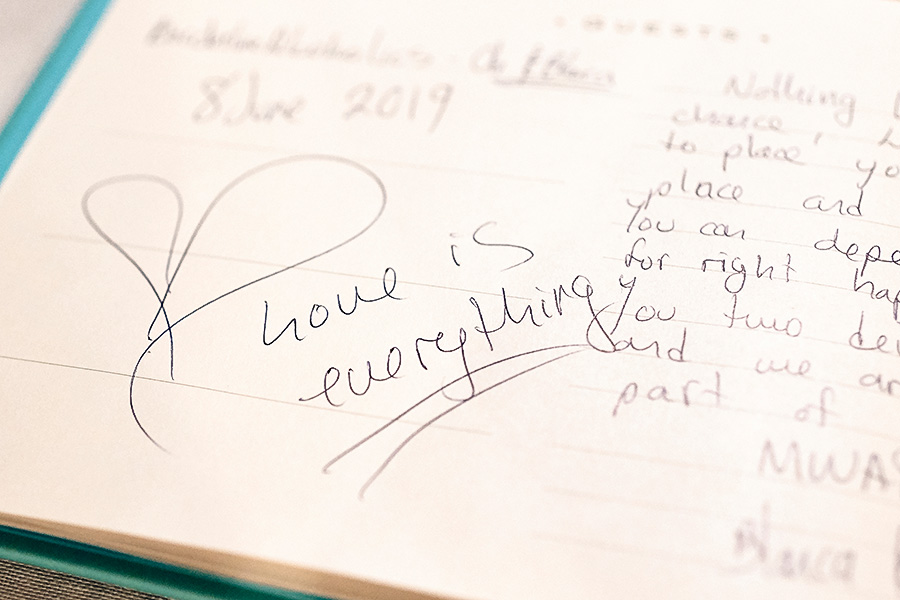 GUESTS
8 June 2019
love is
everything
Nothing
chance,
to place' yo
place and
You can depe
for right hap
You two de
and we ar
part of
MWAS
Blanca